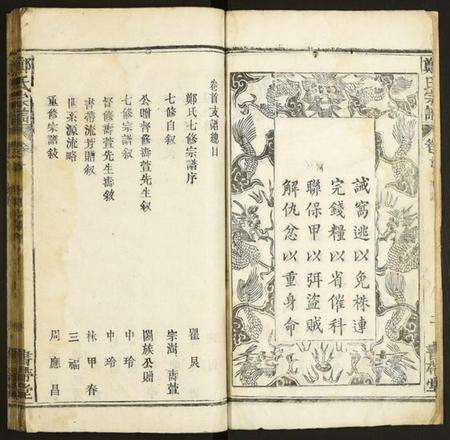 鄭氏宗譜
書帶堂
誡窩逃以免株連
完錢糧以省催科
聯保甲以弭盜賊
解仇忿以重身命
卷首支譜總目
鄭氏七修宗譜序 瞿昊
七修自叙 宗鴻 壽萱
公贈督修壽萱先生叙 闔族公贈
七修宗譜叙 中玲
督修壽萱先生壽敘 中玲
書帶流芳贈叙 林甲春
世系源流略 三福
重修宗譜叙 周應昌
鄭氏宗譜
書帶堂